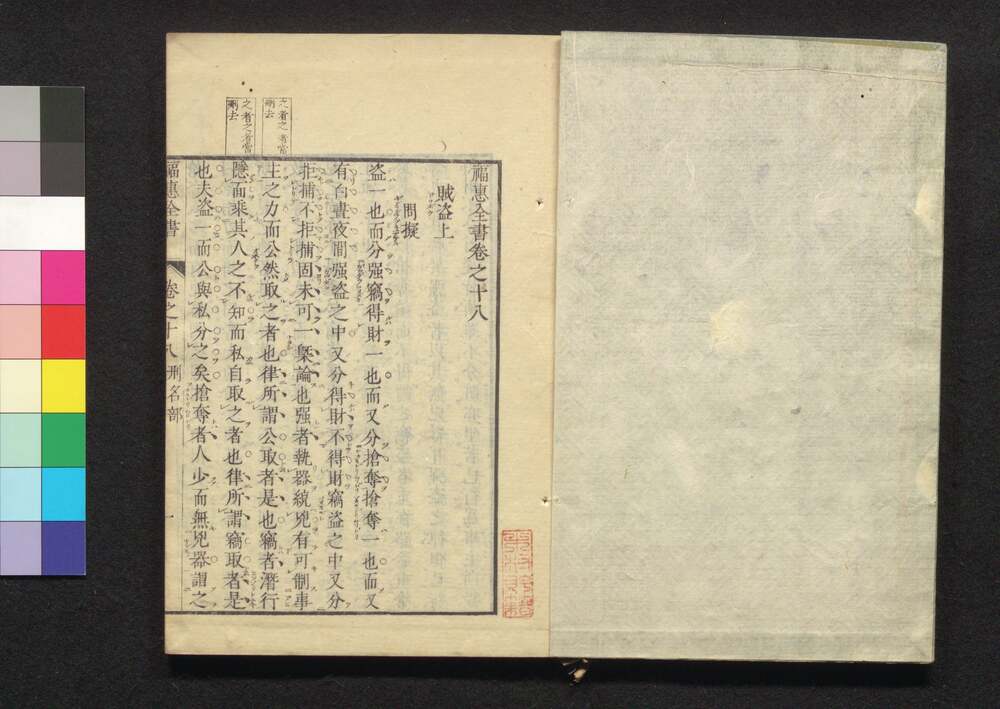 福惠全書卷之十八
賊盜上
問擬
盜一也而分强竊得財一也而又分搶奪搶奪一也而又
有白晝夜間强盜之中又分得財不得財竊盜之中又分
拒捕不拒捕固未可一槩論也强者執器統兇有可制事
主之力而公然取之者也律所謂公取者是也竊者潛行
隱而乘其人之不知而私自取之者也律所謂竊取者是
也夫盜一而公與私分之矣搶奪者人少而無兇器謂之
福惠全書
卷之十八 刑名部
一
之者之者當
兩去
之者之者當
兩去